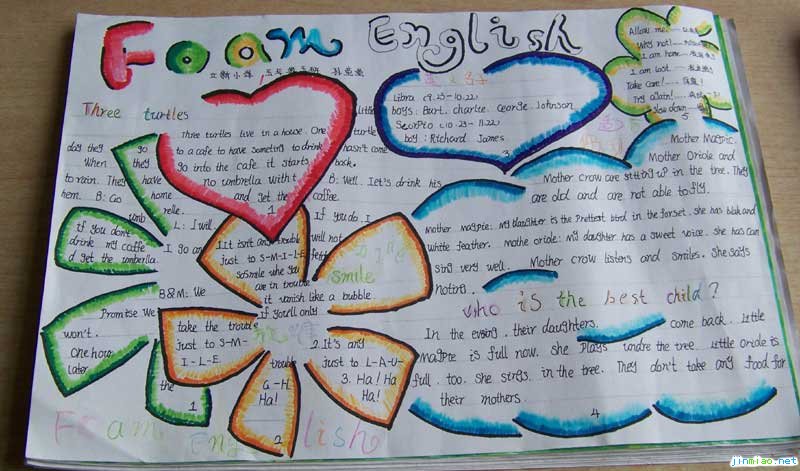 Foam English
Three turtles
Three turtles live in a house. One
little
turtle
day they go to a cafe to have someting to drink hasn't come
When they go into the cafe it starts back.
to rain. They have no umbrella with t B: Well. Iet's drink his
hem. B: Go home and get the coffee.
1
umb relle. If you do. I
if you dont L: I will will not
drink my caffe I go an
d get the umbrella.
B&M: We
Promise We
won't.
One hour
later
the
1
1.It isn't any trouble
just to S-M-I-L-E
So Smile whe you
are in trouble
it vanish like a bubble
If you'll only
take the trouble
just to S-M-
I-L-E
smile
2.It's any
trouble just to L-A-U-
G-H 3. Ha! Ha
Ha! Ha!
2
Foam English
Libra (9.23-10.22)
boys: Bart. charlie. Ceorge Johnson
Scorpio (10.23-11.22)
boy: Richard James
3
Allow me.
Why not!
I am home
I am lost
Take care!
Try again!
Slow down
5
Mother Magpie.
Mother Oriole and
Mother crow are sitting up in the tree. They
are old and are not able to fly.
Mother magpie: my daughter is the Prettest bird in the forset. she has blak and
white feather. mothe oriole: my daughter has a sweet voice. she has can
sing very well. Mother crow listers and smiles. She says
noting.
who is the best child?
In the evsing. their daughters. come back. Little
magpie is full now. she plays undre the tree. Little oriole is
full. too. she sings. in the tree. They don't take any food for
their mothers.
4
jinmiao.net